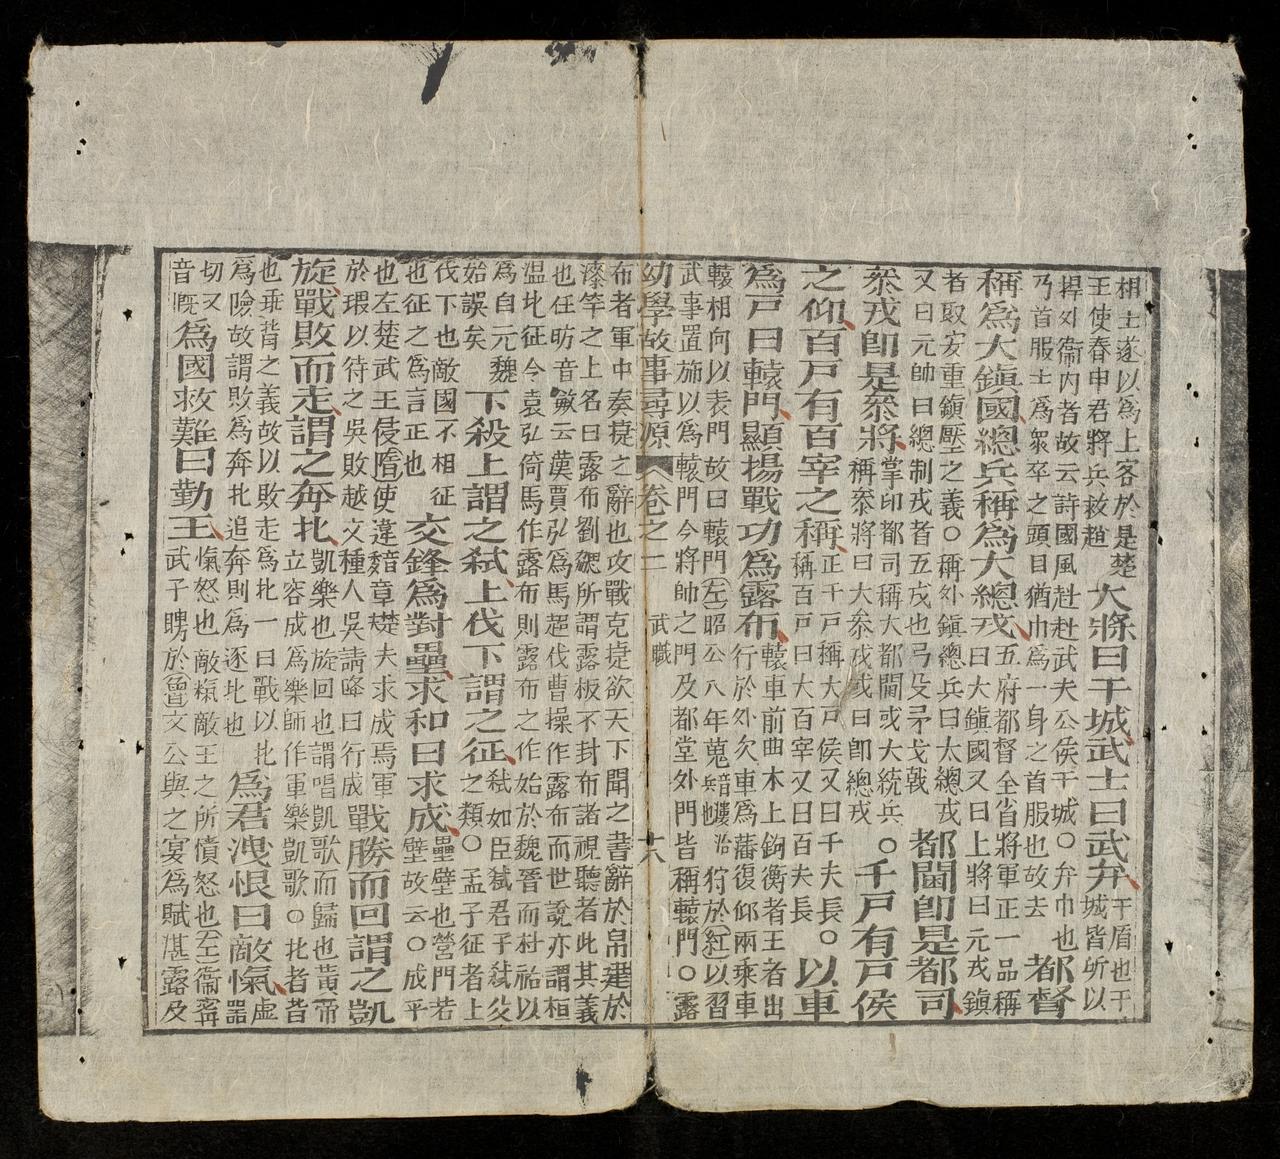 相士遂以爲上客於是楚
王使春申君將兵救趙
大將曰干城武士曰武弁
干盾也干城皆所以
捍外衞內者故云詩國風赳赳武夫公侯干城○弁巾也
乃首服士爲衆卒之頭目猶巾爲一身之首服也故去
都督
稱爲大鎭國總兵稱爲大總戎
五府都督全省將軍正一品稱
曰大鎭國又曰上將曰元戎鎭
者取安重鎭壓之義○稱外鎭總兵曰太總戎
又曰元帥曰總制戎者五戎也弓殳矛戈戟
都閫卽是都司
叅戎卽是叅將
掌印都司稱大都閫或大統兵
稱叅將曰大叅戎或曰卽總戎
○千戸有戸侯
之仰百戸有百宰之稱
正千戸稱大戸侯又曰千夫長○
稱百戸曰大百宰又曰百夫長
以車
爲戸曰轅門顯揚戰功爲露布
轅車前曲木上鉤衡者王者出
行於外欠車爲藩復仰兩乘車
轅相向以表門故曰轅門左昭公八年蒐
狩於紅以習
武事置旃以爲轅門今將帥之門及都堂外門皆稱轅門○露
幼學故事尋源 卷之二 武職 十六
布者軍中奏捷之辭也攻戰克捷欲天下聞之書辭於帛建於
漆竿之上名曰露布劉勰所謂露板不封布諸視聽者此其義
也任昉音敏云漢賈弘爲馬超伐曹操作露布而世說亦謂桓
温北征令袁弘倚馬作露布則露布之作始於魏晉而杜祐以
爲自元魏
始誤矣
下殺上謂之弒上伐下謂之征
弒如臣弒君子弒父
之類○孟子征者上
伐下也敵國不相征
也征之爲言正也
交鋒爲對壘求和曰求成
壘壁也營門若
壁故云○成平
也左楚武王侵隨使薳章楚夫求成焉軍
於瑕以待之吳敗越文種人吳請降曰行成
戰勝而回謂之凱
旋戰敗而走謂之奔北
凱樂也旋回也謂唱凱歌而歸也黃帝
立容成爲樂師作軍樂凱歌○北者昔
也乖背之義故以敗走爲北一曰戰以北
爲險故謂敗爲奔北追奔則爲逐北也
爲君洩恨曰敵愾
虛器
切又
音慨
爲國救難曰勤王
愾怒也敵愾敵王之所憤怒也左衞甯
武子聘於魯文公與之宴爲賦湛露及